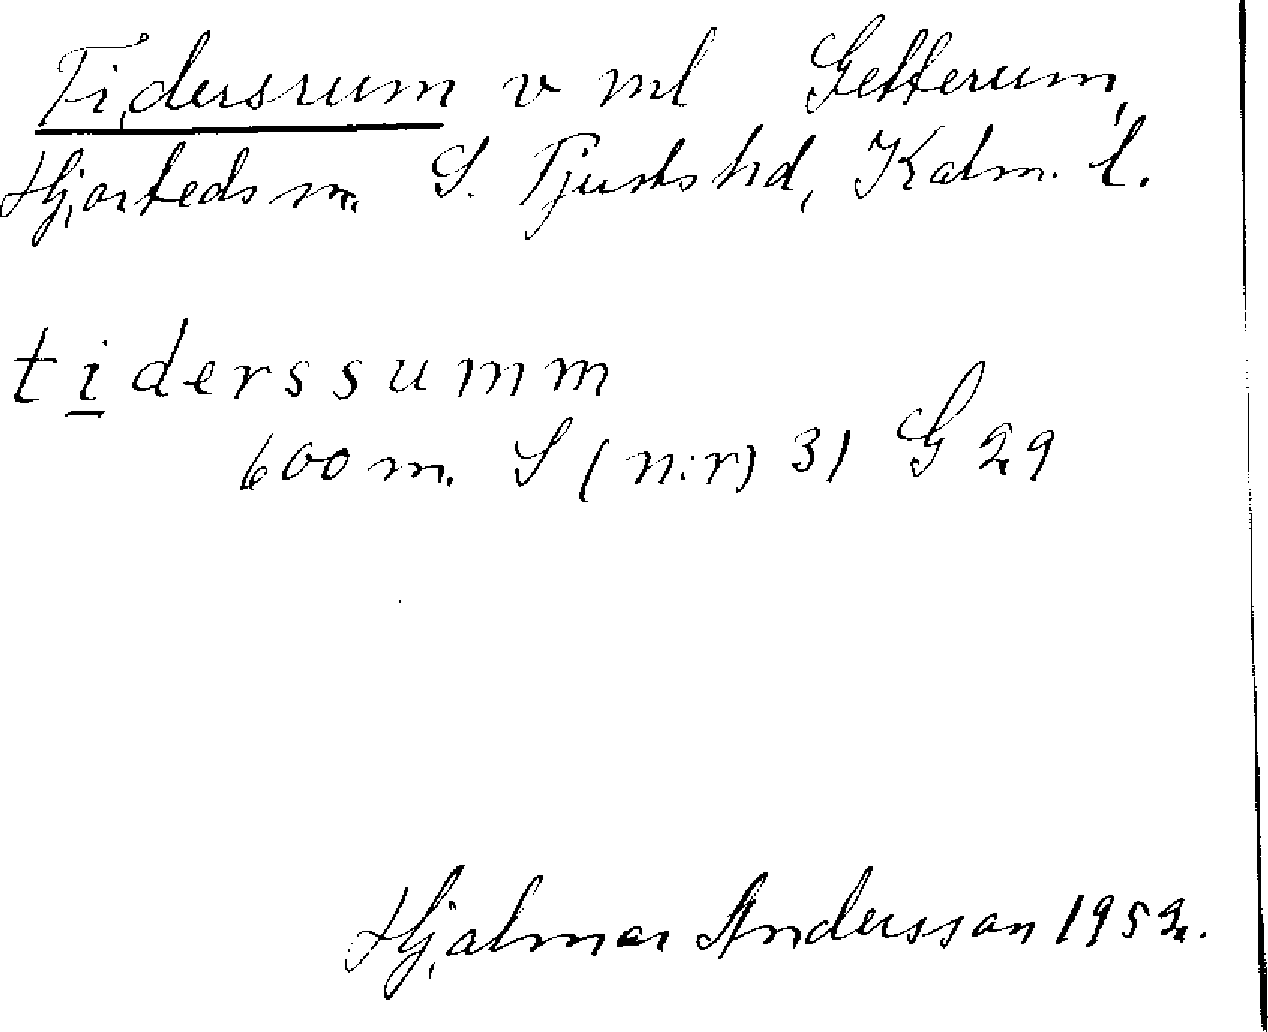 Tidersrum v ml Getterum,
Hjorteds sn. S. Tjusts hd, Kalm. l.
tiderssumm
600 m. S (n:r) 31 G 29
Hjalmar Andersson 1952.